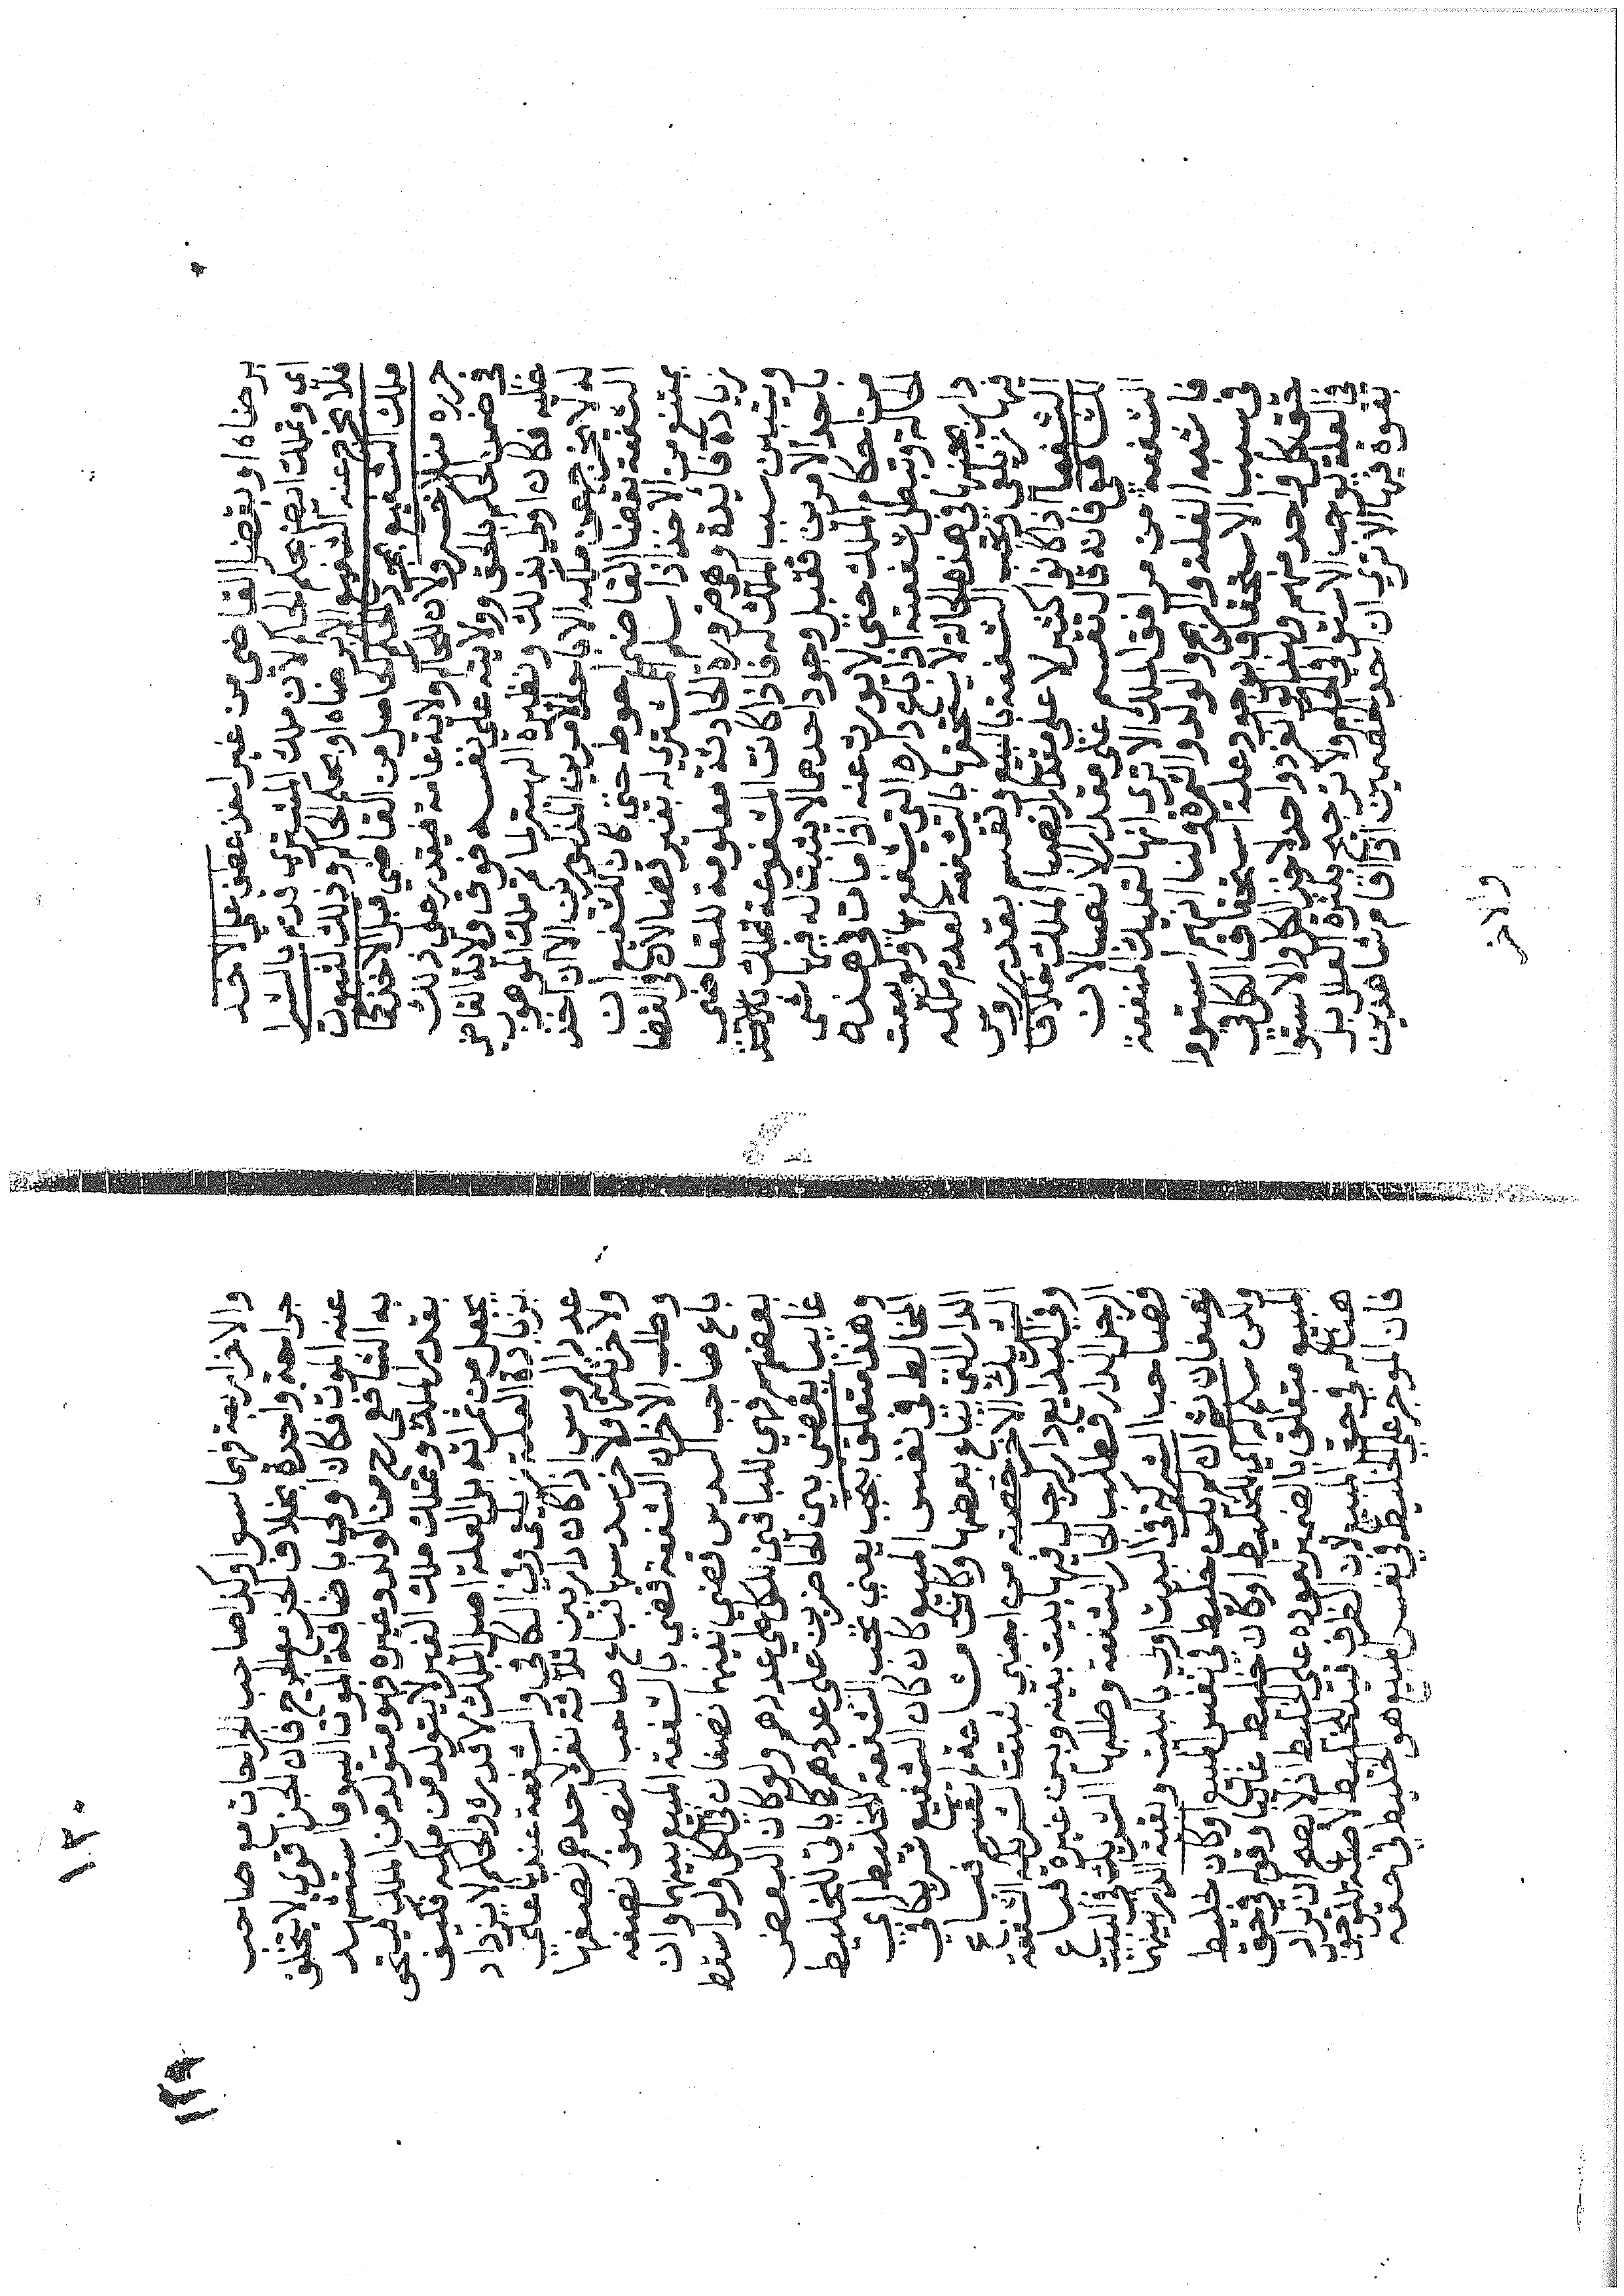 برضاه او بقضا القاضي من غير اخذ عطف على الاخذ
اي وتملك ايضا بحكم الحاكم لان ملك المشتري قد تم بالشرا
فلا يخرج عنه الشفيع الا برضاه او بحكم الحاكم وذلك لثبوت
ملك الشفيع بمجرد الحكم الحاصل من القاضي قبل الاخذ كما
حرره منلا خسرو ولان للحاكم ولاية عامة فيقدر على ذلك
في ضمن الحكم بالحق وولايته على نفسه فوق ولاية القاضي
عليه فكان اولى بذلك ونظيره الهبة لما تم ملك الموهوب
له لا يخرج عن ملكه الا باحد الامرين المذكورين الا ان اخذ
الشفعة بقضا القاضي احوط حتى كان للشفيع ان
يمتنع من الاخذ اذا سلم المشتري له بغير قضا لان في القضا
زيادة فائدة وهي ضرورة الحادثة معلومة للقاضي
ويتبين سبب الملك له فاذا كانت المشفوعة تملك بالاخذ
باحد الامرين فقبل وجود احدهما لا يثبت له فيها شي
من احكام الملك حتى لا يورث عنه اذا مات في هذه
الحالة وتبطل شفعته اذا باع داره التي يشفع بها ولو بيعت
دار بجنبها في هذه الحالة لا يستحقها بالشفعة لعدم ملكه
فيها زيلعي وتجب الشفعة بالبيع وتقسم بقدر روس
الشفعا اذا كانوا كثير لا على مقدار انصبا الملك خلافا
للشافعي فانه قال تقسم على مقدار الانصبا لان
الشفعة من مرافق الملك الا ترى انها لتمليك المنفعة
فاشبه الغلة والربح والولد والثمرة ولنا انهم استووا
في سبب الاستحقاق بوجود علة استحقاق الكل في
حق كل واحد منهم ولهذا لو انفرد واحد اخذ الكل والاستوا
في العلة يوجب الاستوا في الحكم ولا ترجيح بكثرة العلل بل
بقوة فيها الا ترى ان احد الخصمين اذا اقام شاهدين
والاخر
والاخر اربعة فهما سوا وكذا صاحب الجراحات مع صاحب
جراحة واحدة بخلاف الجز مع الجرح فان الجز اقوى لا يتخلف
عنه الموت فكان اولى باضافة الموت اليه وما استشهد
به الشافعي رح من الولد وغيره فهو متولد من الملك فيستحق
بقدر الملك وتملك ملك الغير لا يتولد من ملكه فكيف
يجعل من ثمراته بل العلة اصل الملك لا قدره والحكم لا يزداد
بزيادة العلة زيلعي وفي الكافي والشفعة عندنا على
عدد الروس اذا كان دار بين ثلاثة نفر لاحدهم نصفها
ولاخر ثلثها ولاخر سدسها فباع صاحب النصف نصفه
وطلب الاخران الشفعة قضى بالشفعة المبيع بينهما وان
باع صاحب السدس قضى بينهما نصفان في الكل ولو اسقط
بعضهم فهي للباقي بالكل على عددهم ولو كان البعض
غايبا يقضى بين الحاضرين على عددهم كما ياتي للخليط
وهذا متعلق بتجب يعني تجب الشفعة للخليط اي
المخالط في نفس المبيع كان كان الشفيع شريكا في
الدار التي يباع بعضها وكانت مشاعة لم تقسم فباع
الشريك الاخر حصته من اجنبي ثبتت لشريكه الشفعة
وفي البدايع دار لرجل فيها بيت بينه وبين غيره فباع
الرجل الدار فطلب الجار الشفعة وطلبها الشريك في البيت
فصاحب الشركة في البيت اولى بالبيت وبقية الدار بينهما
نصفان ثم ان لم يكن خليط في نفس المبيع او كان خليط
ولكن سلم له اي للخليط او كان خليط غائبا وقوله في حق
المبيع متعلق بالضمير لعوده على الخليط اذ لا يصح ان يراد
هنا له في حق المبيع لان الظرف قيد للخليط لا صلة للوجوب
فان الموجر على الخليط في نفس المبيع هو الخليط في حقه
١٣٠
١٢٩